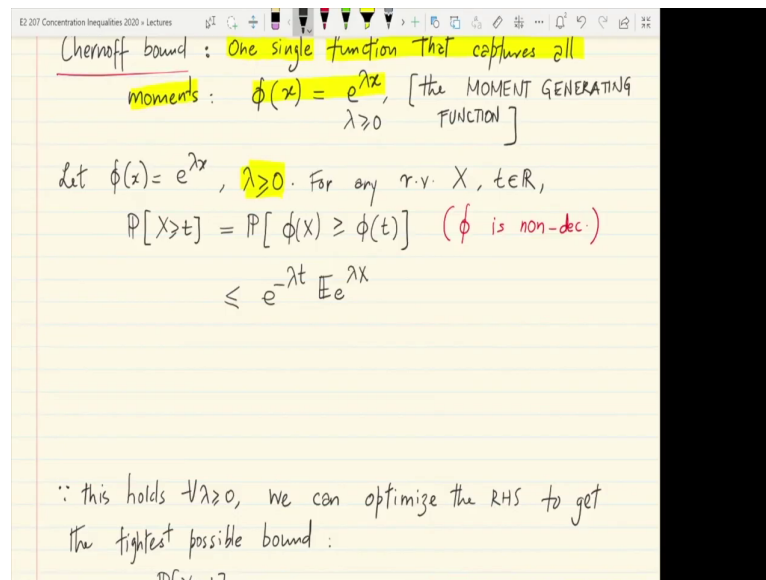 E2 207 Concentration Inequalities 2020 » Lectures
Chernoff bound : One single function that captures all
moments : ϕ(x) = e^{λx}, [the MOMENT GENERATING
λ≥0 FUNCTION]
Let ϕ(x) = e^{λx}, λ≥0. For any r.v. X, t∈ℝ,
ℙ[X≥t] = ℙ[ϕ(X) ≥ ϕ(t)] (ϕ is non-dec.)
≤ e^{-λt} 𝔼e^{λX}
∵ this holds ∀λ≥0, we can optimize the RHS to get
the tightest possible bound :